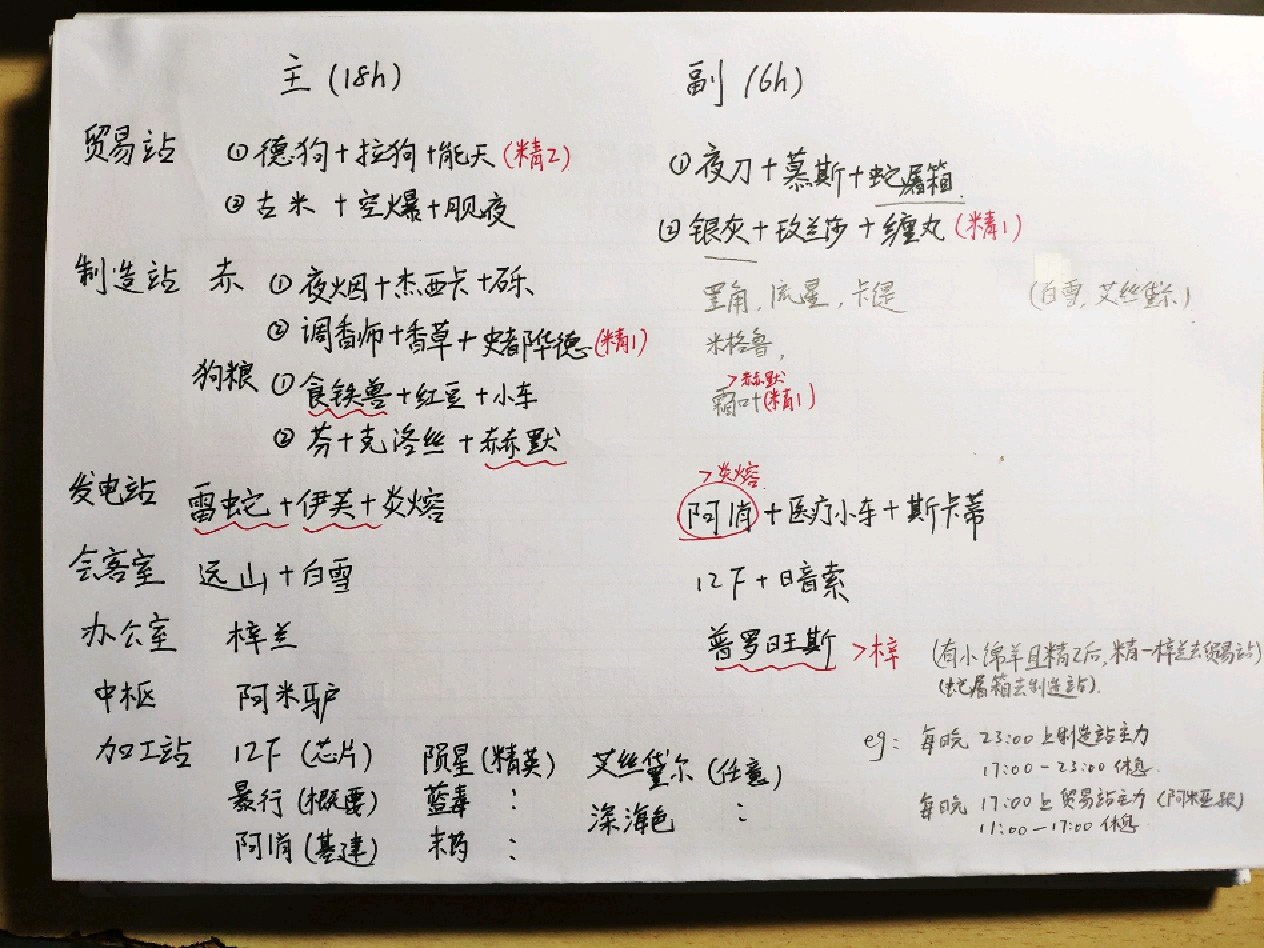 主 (18h) 副 (6h)
贸易站 ① 德狗+拉狗+能天 (精2) ① 夜刀+慕斯+蛇屠箱
② 古米 + 空爆+月见夜 ② 银灰+玫兰莎+缠丸 (精1)
制造站 赤 ① 夜烟+杰西卡+砾 星角, 流星, 卡缇 (白雪, 艾丝黛尔)
② 调香师+香草+史都华德 (精1) 米格鲁,
>赫默
狗粮 ① 食铁兽+红豆+小车 霜叶 (精1)
② 芬+克洛丝+赫默
>炎熔
发电站 雷蛇+伊芙+炎熔 阿消+医疗小车+斯卡蒂
会客室 远山+白雪 12F+暗索
办公室 梓兰 普罗旺斯 >梓 (有小绵羊且精2后, 精一梓兰去贸易站)
(蛇屠箱去制造站).
中枢 阿米驴
加工站 12F (芯片) 陨星 (精英) 艾丝黛尔 (任意)
暴行 (概要) 蓝毒 : 深海色 :
阿消 (基建) 末药 :
eg: 每晚 23:00 上制造站主力
17:00-23:00 休息.
每晚 17:00上贸易站主力
11:00-17:00 休息.